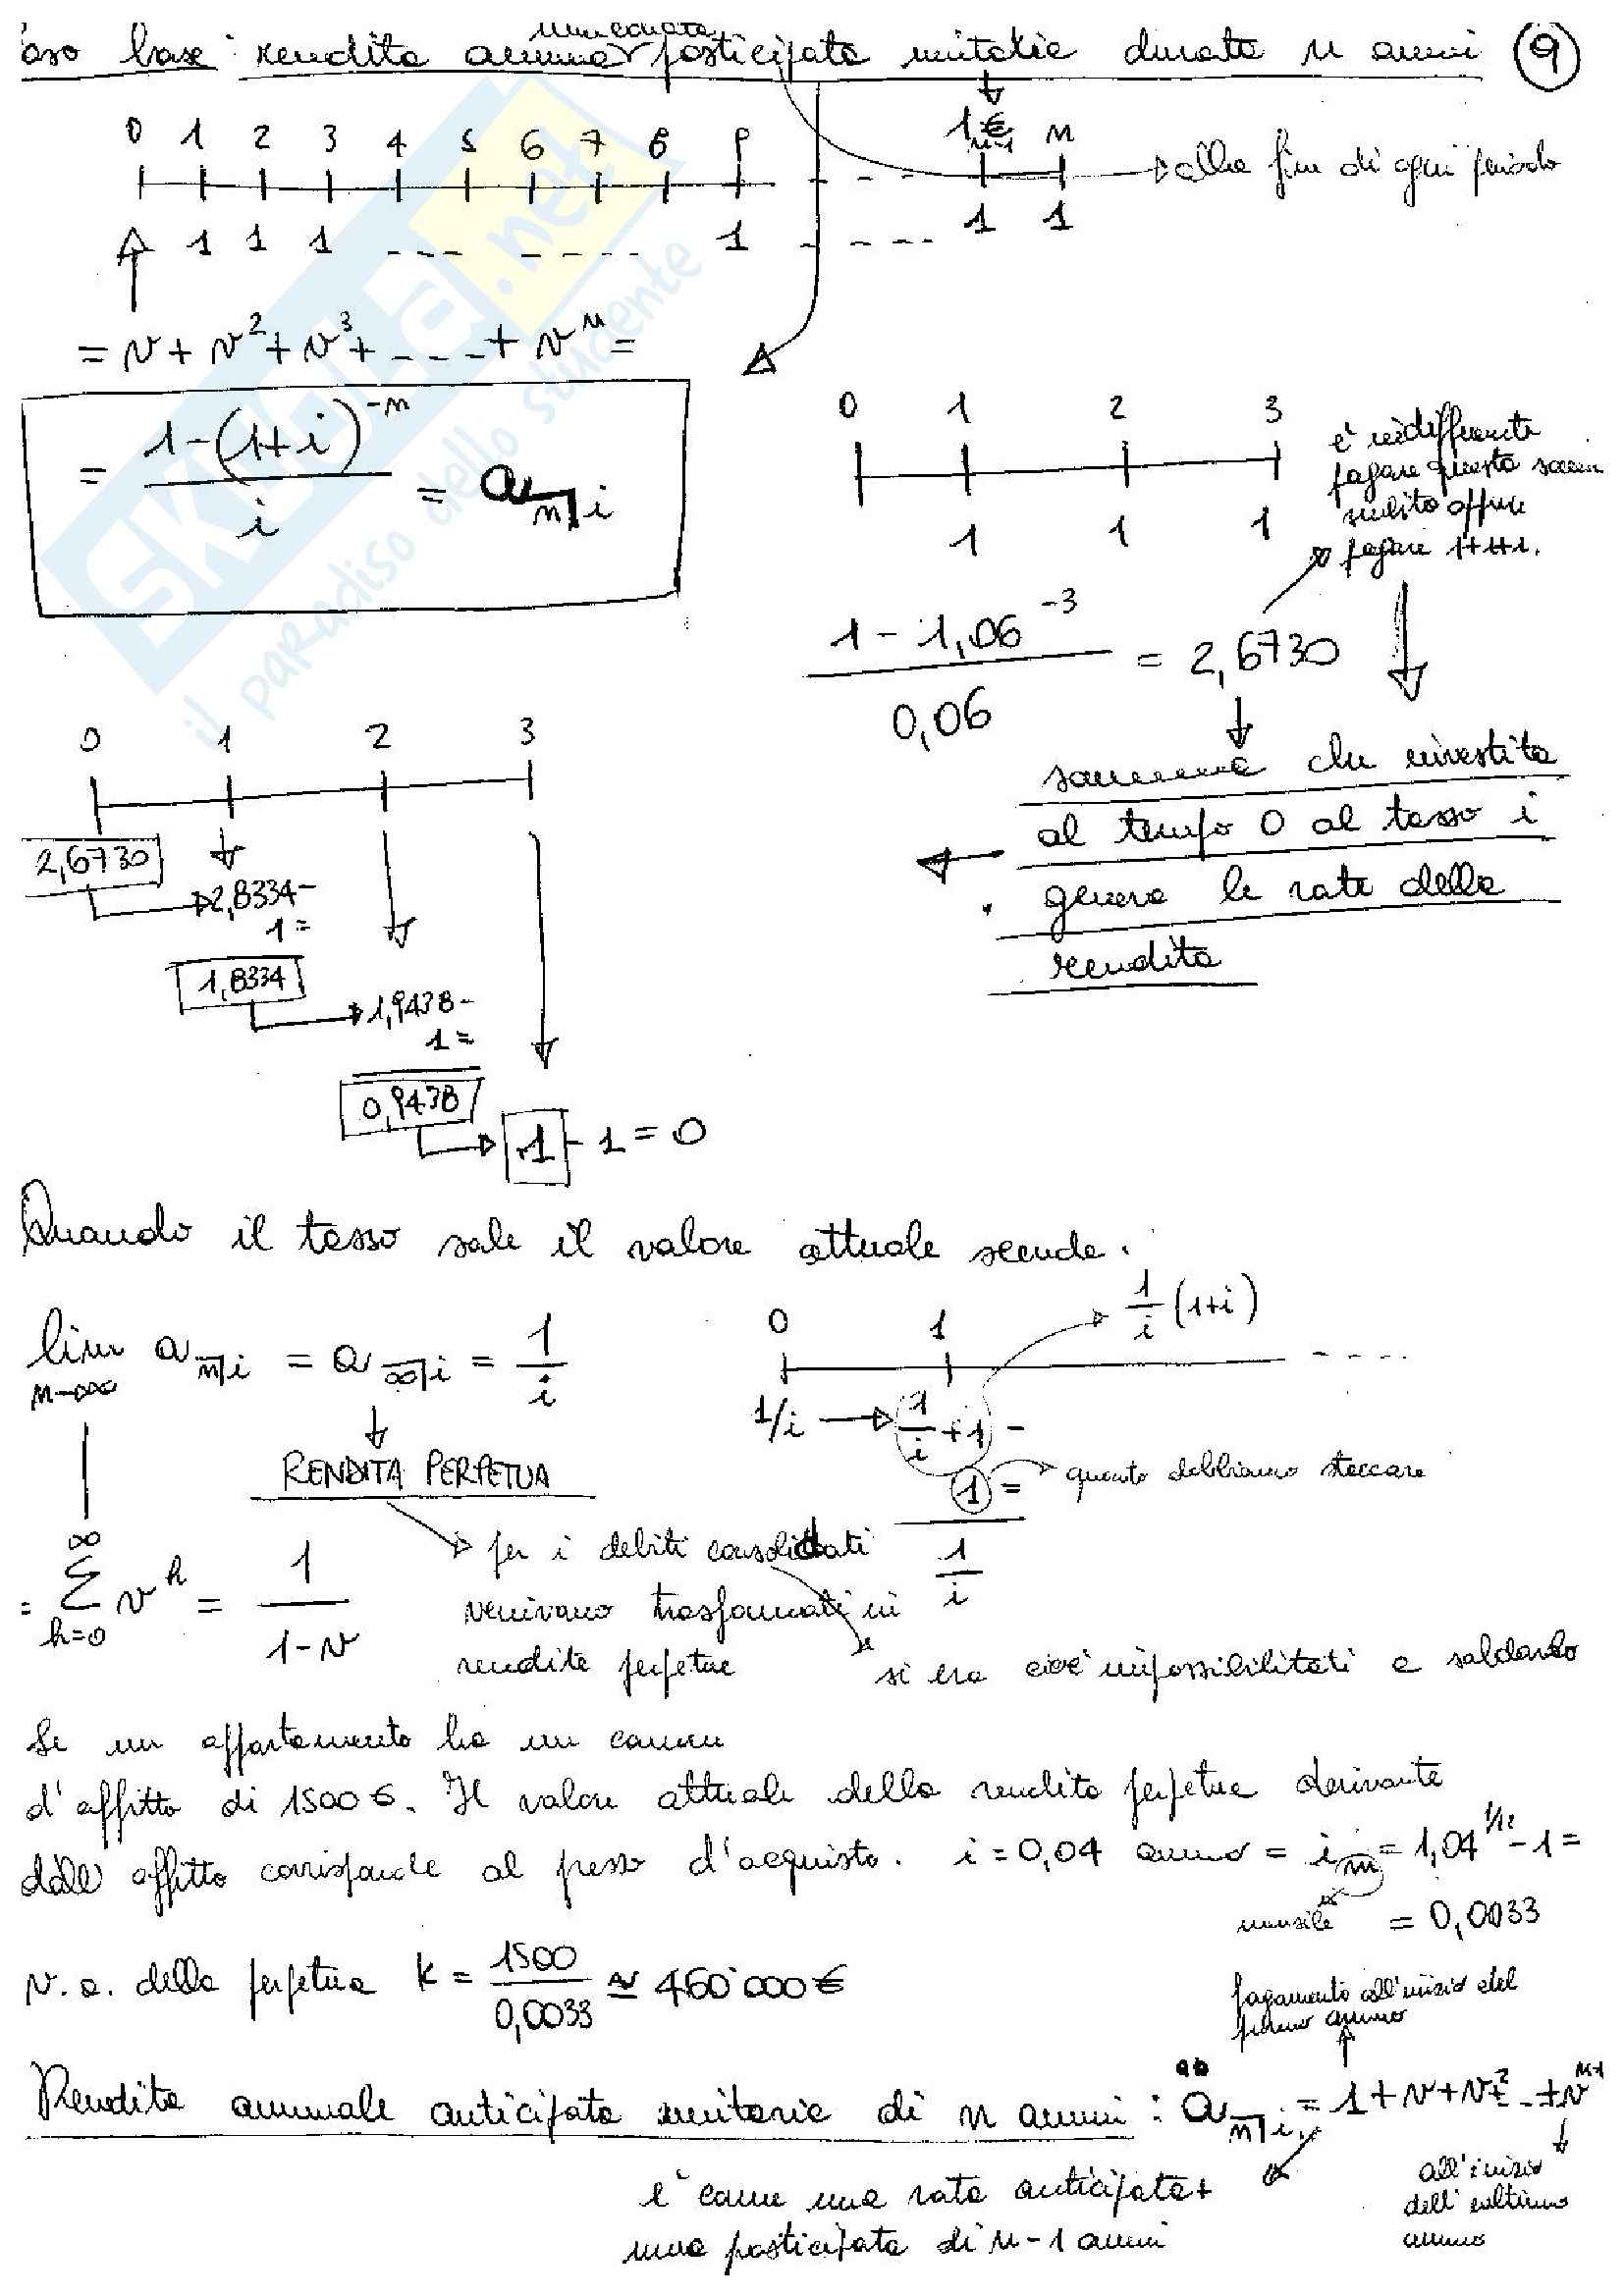 aso base rendita annua immediata posticipata unitaria durata n anni 9
0 1 2 3 4 5 6 7 8 9 1€ n-1 n
→ alla fine di ogni periodo
1 1 1 ---- ----- 1 ----- 1 1
= v + v² + v³ + ---- + vⁿ =
= 1-(1+i)⁻ⁿ / i = a n̅| i
0 1 2 3
1 1 1
è indifferente
pagare questa somma
subito oppure
pagare 1+1+1.
1 - 1,06⁻³ / 0,06 = 2,6730
somma che investita
al tempo 0 al tasso i
genera le rate della
rendita
0 1 2 3
2,6730
2,8334 -
1 =
1,8334
1,9438 -
1 =
0,9438
1 - 1 = 0
Quando il tasso sale il valore attuale scende.
lim n→∞ a n̅| i = a ∞̅| i = 1/i
RENDITA PERPETUA
0 1 ----
1/i (1+i)
1/i → 1/i + 1 -
1 = quanto dobbiamo staccare
1/i
= ∑ h=0 ∞ vʰ = 1 / 1-v
per i debiti consolidati
venivano trasformati in
rendite perpetue
si era cioè impossibilitati a saldarlo
Se un appartamento ha un canone
d'affitto di 1500 €. Il valore attuale della rendita perpetua derivante
dall'affitto corrisponde al prezzo d'acquisto. i = 0,04 annuo = i m = 1,04^1/12 - 1 =
mensile = 0,0033
v.a. della perpetua k = 1500 / 0,0033 ≅ 460'000 €
pagamento all'inizio del
primo anno
Rendita annuale anticipata unitaria di n anni : ä n̅| i = 1 + v + v² + -- + vⁿ⁻¹
è come una rata anticipata +
una posticipata di n-1 anni
all'inizio
dell'ultimo
anno
SKUOLA.net
il paradiso dello studente